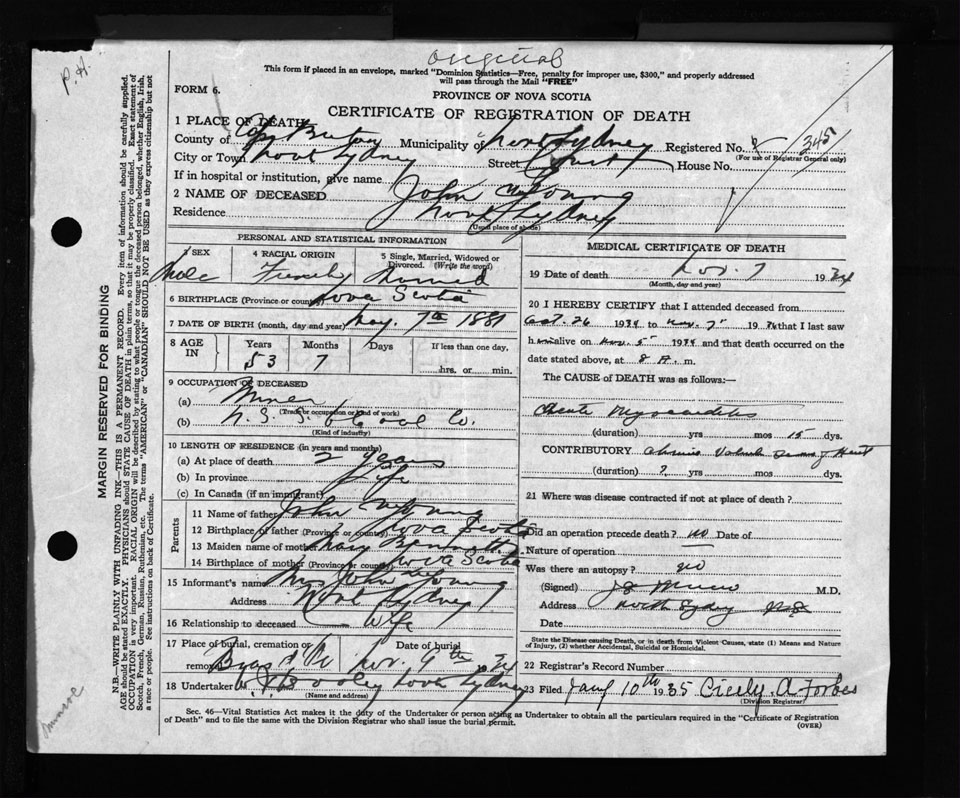 original
P. H.
This form if placed in an envelope, marked "Dominion Statistics—Free, penalty for improper use, $300," and properly addressed
will pass through the Mail "FREE"
FORM 6.
PROVINCE OF NOVA SCOTIA
CERTIFICATE OF REGISTRATION OF DEATH
1 PLACE OF DEATH
County of Cape Breton Municipality of North Sydney Registered No. 345
(For use of Registrar General only)
City or Town North Sydney Street Court House No.
If in hospital or institution, give name
2 NAME OF DECEASED John Young
Residence North Sydney
(Usual place of abode)
PERSONAL AND STATISTICAL INFORMATION
3 SEX Male
4 RACIAL ORIGIN
5 Single, Married, Widowed or Divorced. (Write the word) Married
6 BIRTHPLACE (Province or country) Nova Scotia
7 DATE OF BIRTH (month, day and year) 7th 1881
8 AGE IN Years 53 Months 7 Days If less than one day. hrs. or min.
9 OCCUPATION OF DECEASED
(a) Miner
(Trade or occupation or kind of work)
(b) N. S. S. & Coal Co.
(Kind of industry)
10 LENGTH OF RESIDENCE (in years and months)
(a) At place of death 2 years
(b) In province Life
(c) In Canada (if an immigrant)
Parents
11 Name of father John Young
12 Birthplace of father (Province or country) Nova Scotia
13 Maiden name of mother Mary
14 Birthplace of mother (Province or country) Nova Scotia
15 Informant's name Mrs John Young
Address North Sydney
16 Relationship to deceased Wife
17 Place of burial, cremation or removal Date of burial Nov. 9th 1934
18 Undertaker North Sydney
(Name and address)
MEDICAL CERTIFICATE OF DEATH
19 Date of death Nov. 7 1934
(Month, day and year)
20 I HEREBY CERTIFY that I attended deceased from
Oct. 26 1934 to Nov. 7 1934 that I last saw
him alive on Nov. 5 1934 and that death occurred on the
date stated above, at 8 A. m.
The CAUSE of DEATH was as follows:—
Acute Myocarditis
(duration) yrs mos 15 dys.
CONTRIBUTORY Chronic Valvular Heart
(duration) ? yrs mos dys.
21 Where was disease contracted if not at place of death?
Did an operation precede death? no Date of
Nature of operation
Was there an autopsy? no
(Signed) M.D.
Address North Sydney N.S.
Date
State the Disease causing Death, or in death from Violent Causes, state (1) Means and Nature
of Injury, (2) whether Accidental, Suicidal or Homicidal.
22 Registrar's Record Number
23 Filed Jany 10th 1935 Cicely A. Forbes
(Division Registrar)
Sec. 46—Vital Statistics Act makes it the duty of the Undertaker or person acting as Undertaker to obtain all the particulars required in the "Certificate of Registration
of Death" and to file the same with the Division Registrar who shall issue the burial permit.
(OVER)
MARGIN RESERVED FOR BINDING
N.B.—WRITE PLAINLY WITH UNFADING INK—THIS IS A PERMANENT RECORD. Every item of information should be carefully supplied.
AGE should be stated EXACTLY. PHYSICIANS should STATE CAUSE OF DEATH in plain terms, so that it may be properly classified. Exact statement of
OCCUPATION is very important. RACIAL ORIGIN will be described by stating to what people or tongue the deceased person belonged, whether English, Irish,
Scotch, French, German, Russian, Ruthenian, etc. The terms "AMERICAN" or "CANADIAN" SHOULD NOT BE USED as they express citizenship but not
a race or people. See instructions on back of Certificate.